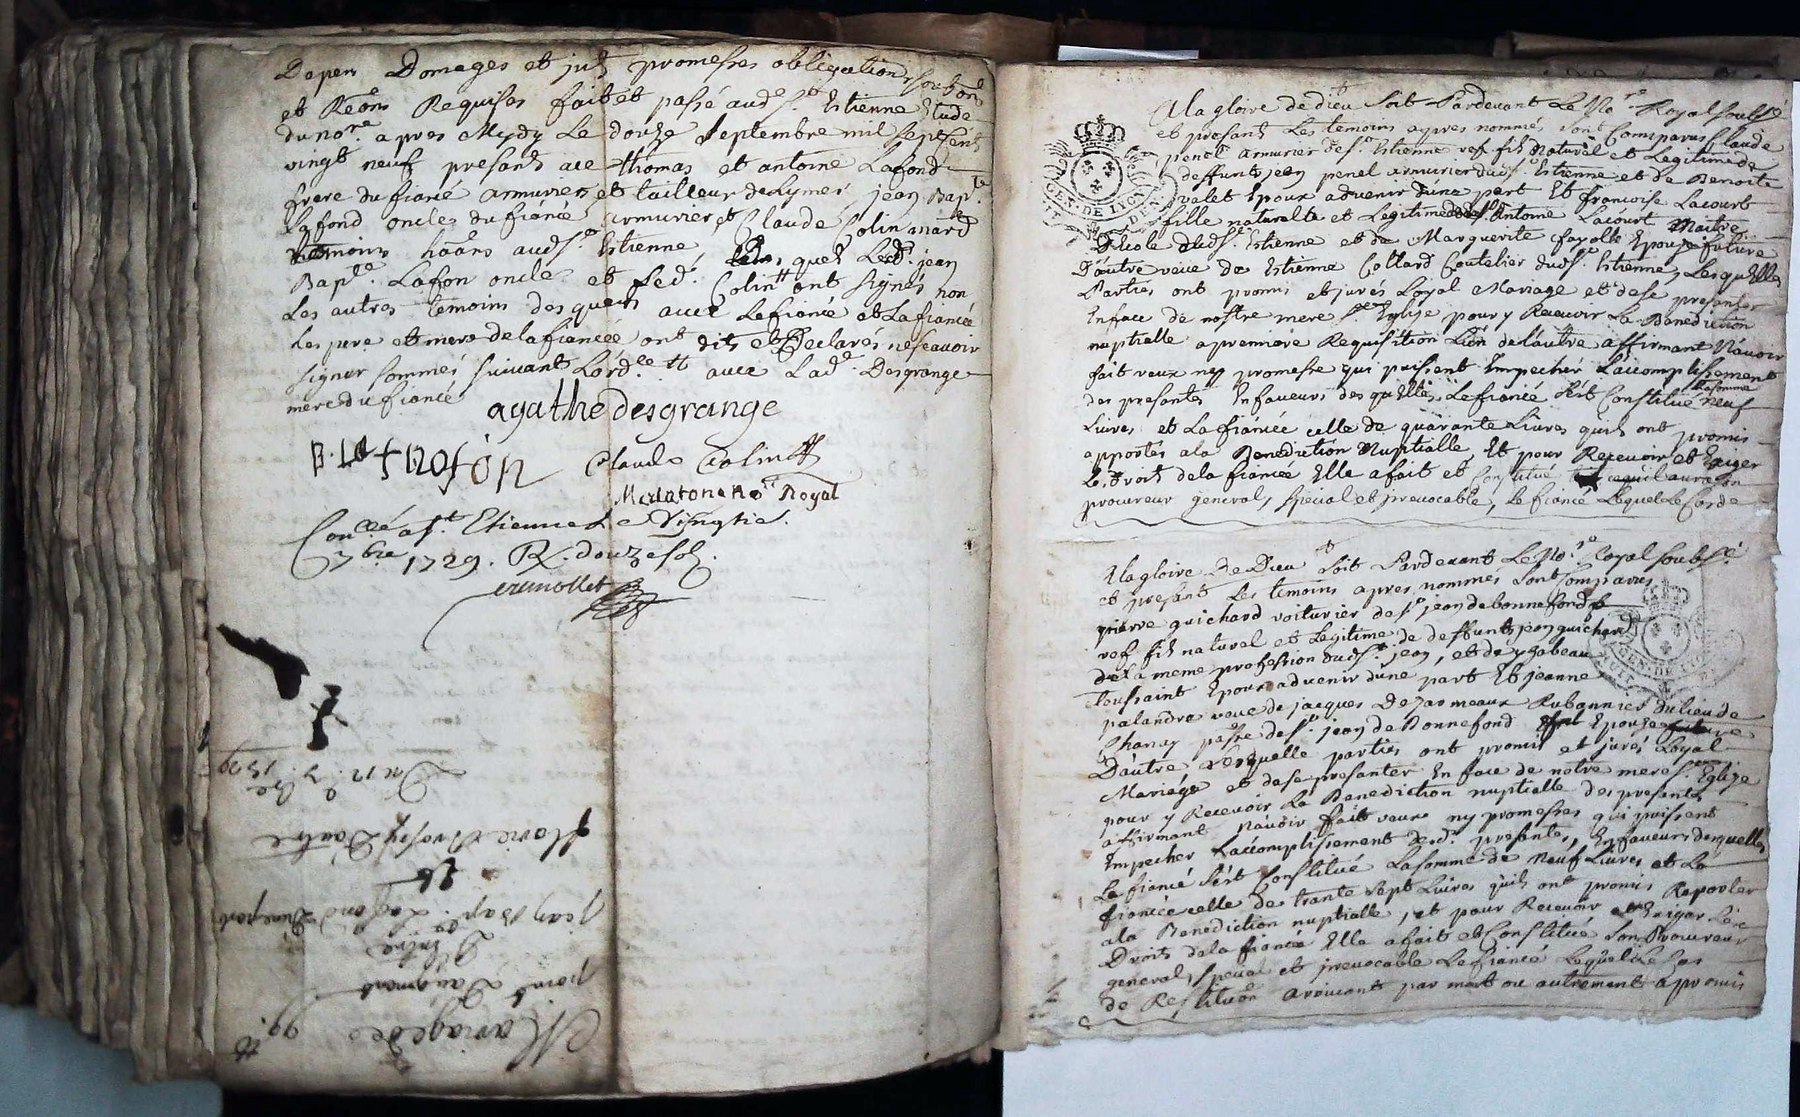 Depens Domages et promesses obligations
et Requises fait et passé aud. St. Estienne Etude
du nore apres Mydy Le douze Septembre mil sept cent
vingt neuf presants thomas et antoine Lafond
frere du fiancé armurier et tailleur de Lymes jean Bap.te
Lafond oncle du fiancé armurier et Claude Colin
temoins aud. St. Estienne, quels Led. jean
Bapte. Lafon oncle et Led. Colin ont signés non
Les autres temoins des quers avec Le fiancé et La fiancée
Les pere et mere de la fiancée ont dits et Declarés ne scavoir
signer sommés suivant Lord.ce avec Lad. Desgrange
mere du fiancé
agathe desgrange
Claude Colin
Royal
St. Etienne Le
7bre 1729. R. douze sols.
Du 12. 7bre 1729
Marie D'autre
jean Bapt. Lafond D'une part
Entre
point Daugment
Mariage de
99.tt
A la gloire de dieu soit Pardevant Le No.re Royal soubs.né
et presants Les temoins apres nommés sont Comparus Claude
penel armurier de St. Estienne fils Naturel et Legitime de
deffunts jean penel armurier dud. St. Estienne et de Benoite
valet Epoux advenir d'une part Et francoise Lacourt
fille naturelle et Legitime de St. Antoine Lacourt Maitre
D'Ecole dud. St. Estienne et de Marguerite fayolle Epouze future
D'autre veuve de Estienne Collard Coutelier dud. St. Estienne, Lesquelles
Parties ont promis et jurés Loyal Mariage et de se presenter
En face de nostre mere Ste. Eglize pour y Recevoir La Benediction
nuptialle a premiere Requisition L'un de L'autre affirmant N'avoir
fait veux ny promesse qui puissent Empecher Laccomplissement
des presentes En faveurs desquelles Le fiancé S'est Constitué La somme neuf
Livres et La fiancée celle de quarante Livres quils ont promis
apportés a la Benediction Nuptialle, Et pour Recevoir et Exiger
Les Droits de la fiancée Elle a fait et Constitué
procureur general, special et irrevocable, Le fiancé Lequel Le Cas de
A la gloire De Dieu soit Pardevant Le No.re Royal soubs.né
et presants Les temoins apres nommés sont Comparus
pierre guichard voiturier de St. jean de bonnefond
fils naturel et Legitime de deffunts jean guichard
de La meme profession dud. St. jean, et de ysabeau
Toussaint Epoux advenir d'une part Et jeanne
palandre veuve de jacques Dezarmeaux Rubannier du lieu de
Chanay psse de St. jean de Bonnefond Epouze future
D'autre Lesquelle parties ont promis et jurés Loyal
Mariage et de se presanter En face de notre mere Ste. Eglize
pour y Recevoir La Benediction nuptialle des presents
affirmant N'avoir fait veux ny promesses qui puissent
Empecher Laccomplissement desd. presentes, En faveurs desquelles
Le fiancé S'est Constitué La somme de Neuf Livres et La
fiancée celle de trante sept Livres quils ont promis Raporter
a la Benediction nuptialle, et pour Recevoir et Exiger Les
Droits de la fiancée Elle a fait et Constitué son Procureur
general, special et jrevocable Le fiancé Lequel Le Cas
de Restitution arrivant par mort ou autrement a promis